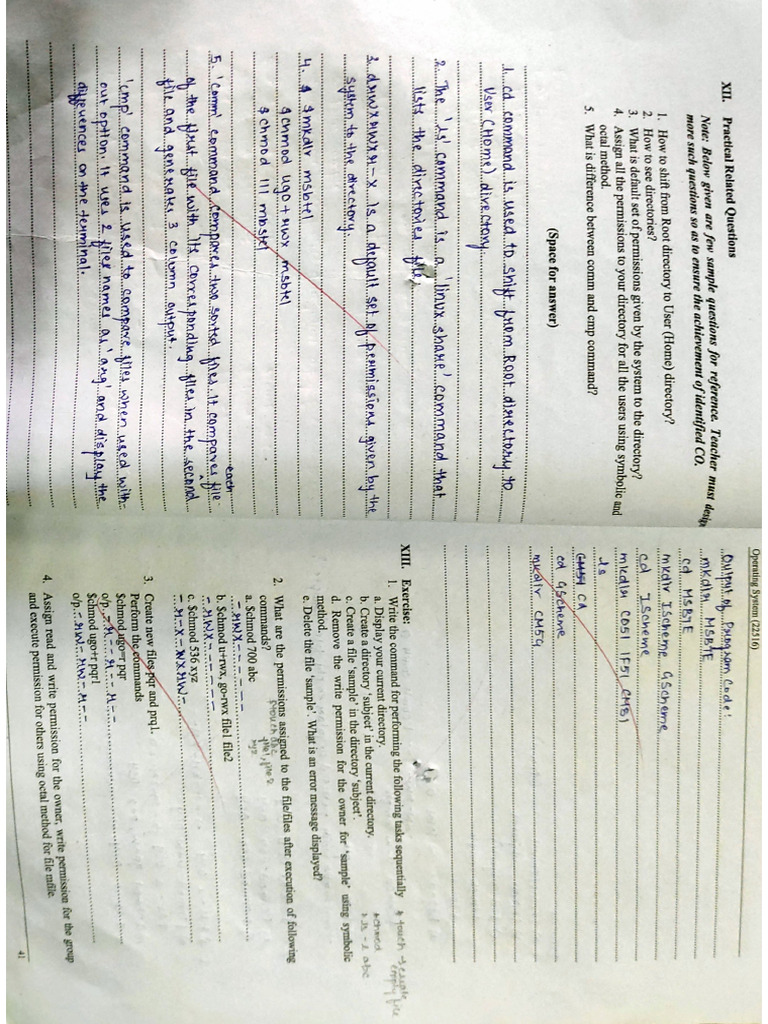 XII. Practical Related Questions
Note: Below given are few sample questions for reference. Teacher must design
more such questions so as to ensure the achievement of identified CO.
1. How to shift from Root directory to User (Home) directory?
2. How to see directories?
3. What is default set of permissions given by the system to the directory?
4. Assign all the permissions to your directory for all the users using symbolic and
octal method.
5. What is difference between comm and cmp command?
(Space for answer)
1. cd command is used to shift from Root directory to
User (Home) directory.
2. The 'ls' command is a 'linux share' command that
lists the directories files
3. drwxrwxr-x is a default set of permissions given by the
system to the directory.
4. $ $mkdir msbte1
$chmod ugo+rwx msbte1
$chmod 111 mbste1
5. 'comm' command compares two sorted files. It compares each file
of the first file with its corresponding files in the second
file and generates 3 column output.
'cmp' command is used to compare files when used with-
out option. It uses 2 files names as 'arg' and display the
differences on the terminal.
Operating System (22516)
Output of Program Code:
mkdir MSBTE
cd MSBTE
mkdir Ischeme Gscheme
cd Ischeme
mkdir CO5I IF5I CM5I
ls
CM5I CA
cd Gscheme
mkdir CM5G
XIII. Exercise:
1. Write the command for performing the following tasks sequentially
a. Display your current directory.
b. Create a directory 'subject' in the current directory.
c. Create a file 'sample' in the directory 'subject'.
d. Remove the write permission for the owner for 'sample' using symbolic
method.
e. Delete the file 'sample'. What is an error message displayed?
$ touch - create
empty file
$ ls - l abc
2. What are the permissions assigned to the file/files after execution of following
commands?
a. $chmod 700 abc
-rwx------
b. $chmod u=rwx, go-rwx file1 file2
-rwx------
c. $chmod 536 xyz
-r-x-wxrw-
3. Create new files pqr and prq1.
Perform the commands
$chmod ugo=r pqr
o/p -r--r--r--
$chmod ugo+r pqr1
o/p -rw-rw-r--
4. Assign read and write permission for the owner, write permission for the group
and execute permission for others using octal method for file mfile.
41